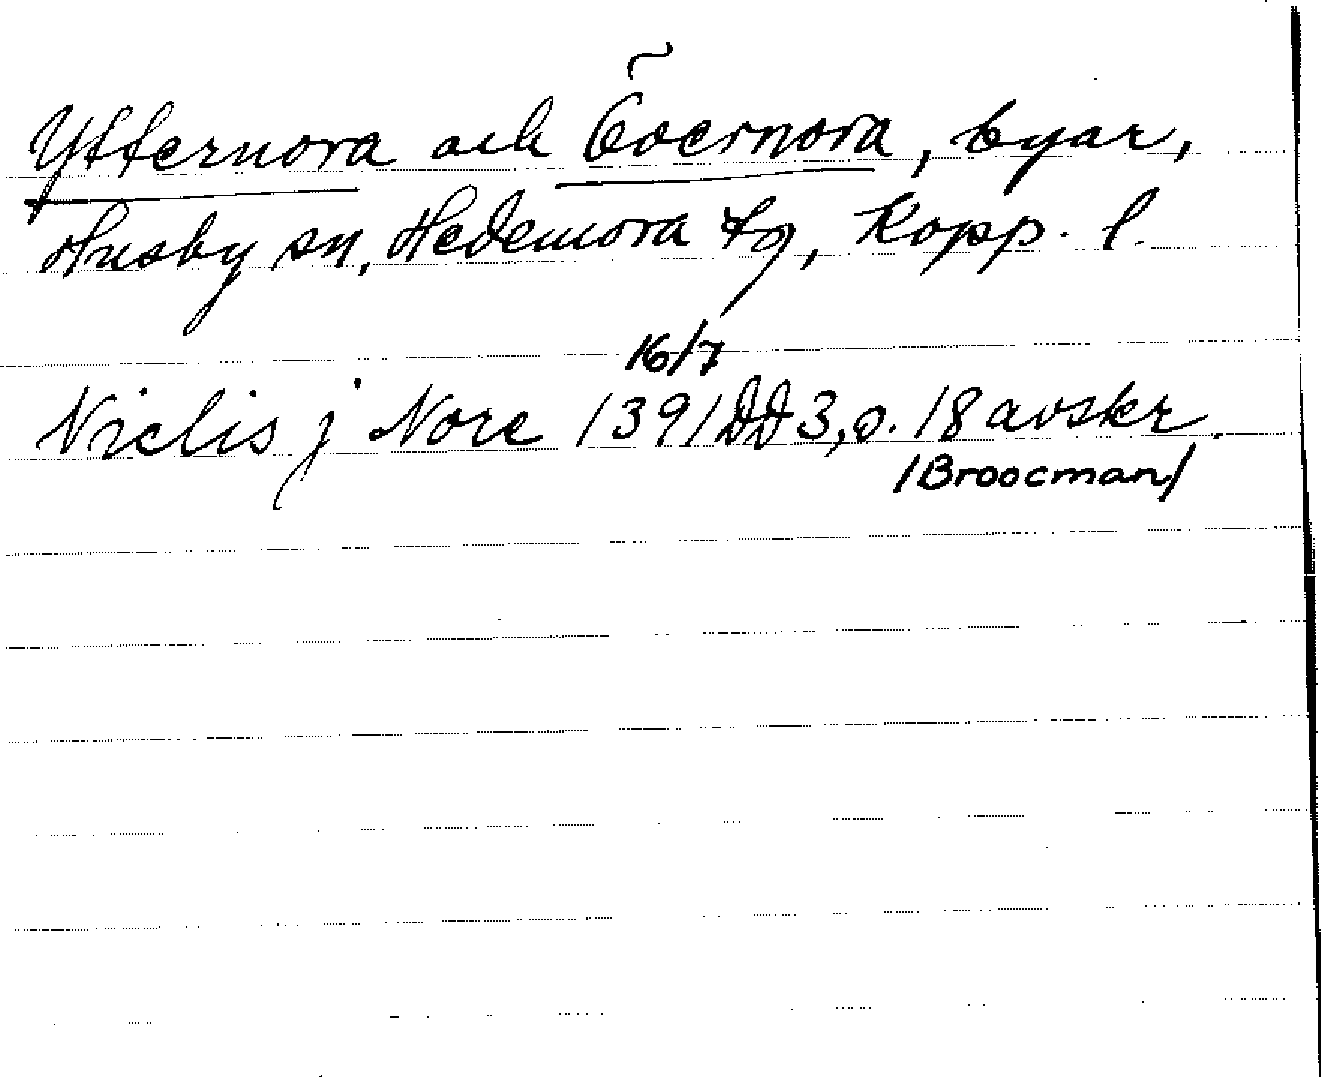 Ytternora och Övernora, byar,
Husby sn, Hedemora tg, Kopp. l.
16/7
Niclis j Nore 1391 DD 3, s. 18 avskr.
/Broocman/